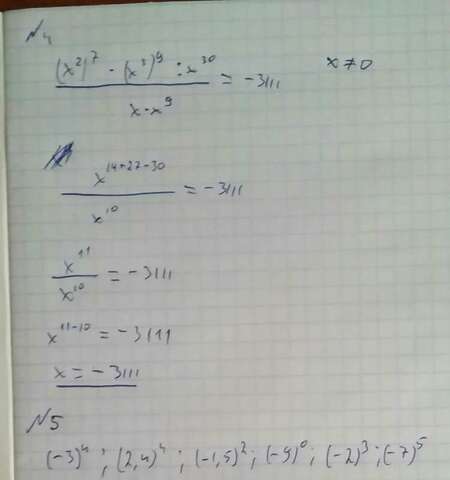 №4
(x²)⁷ · (x³)⁹ : x³⁰ / x · x⁹ = -3111   x ≠ 0
x¹⁴⁺²⁷⁻³⁰ / x¹⁰ = -3111
x¹¹ / x¹⁰ = -3111
x¹¹⁻¹⁰ = -3111
x = -3111
№5
(-3)⁴ ; (2,4)⁴ ; (-1,5)² ; (-9)⁰ ; (-2)³ ; (-7)⁵